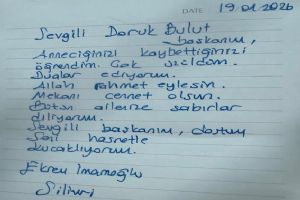 DATE 19.01.2026
Sevgili Doruk Bulut
başkanım,
Anneciğinizi kaybettiğinizi
öğrendim. Çok üzüldüm.
Dualar ediyorum.
Allah rahmet eylesin.
Mekanı cennet olsun.
Bütün ailenize sabırlar
diliyorum.
Sevgili başkanım, dostum
Sizi hasretle
kucaklıyorum.
Ekrem İmamoğlu
Silivri